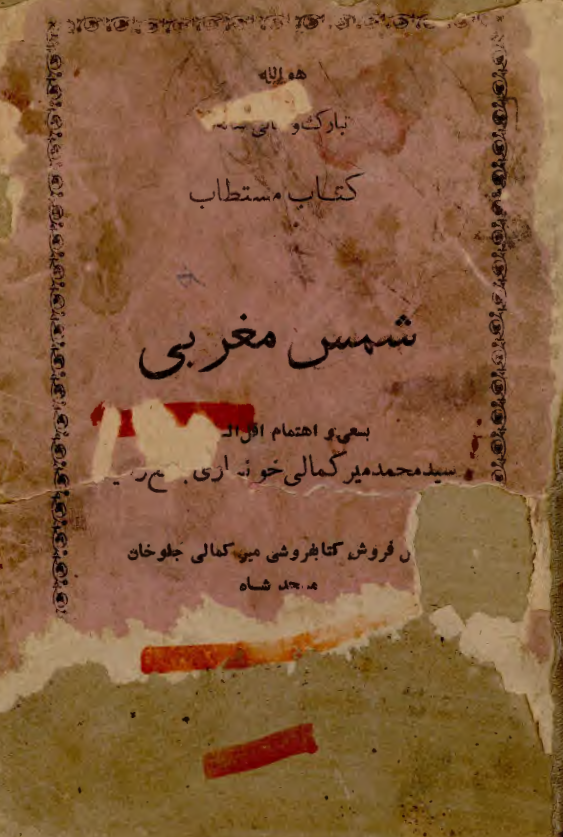 هو الله
کتاب مستطاب
شمس مغربی
بسعی و اهتمام اقل
سید محمد میر کمالی
فروش کتابفروشی میر کمالی جلوخان
شاه